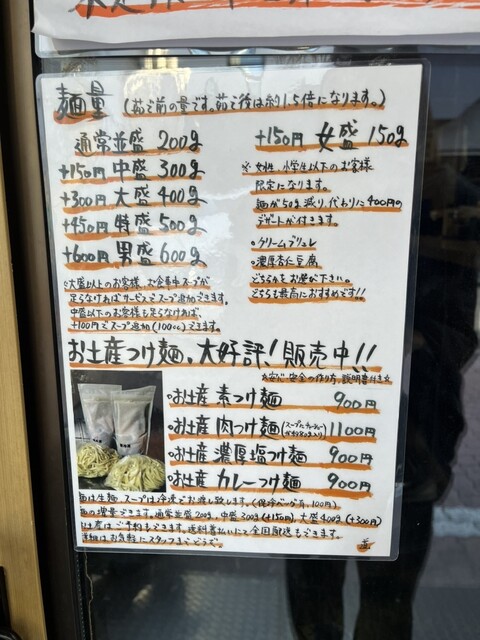 麺量 (茹で前の量です。茹で後は約1.5倍になります。)
通常並盛 200g
+150円 中盛 300g
+300円 大盛 400g
+450円 特盛 500g
+600円 男盛 600g
※大盛以上のお客様、お食事中スープが
足らなければサービスでスープ追加できます。
中盛以下のお客様も足らなければ、
+100円でスープ追加(100cc)できます。
+150円 女盛 150g
※女性、小学生以下のお客様
限定になります。
麺が50g減り、代わりに400円の
デザートが付きます。
・クリームブリュレ
・濃厚杏仁豆腐
どちらかをお選び下さい。
どちらも最高におすすめです!!
お土産つけ麺、大好評!販売中!!
☆安心、安全の作り方、説明書付き☆
・お土産 素つけ麺 900円
・お土産 肉つけ麺 1100円
・お土産 濃厚塩つけ麺 900円
・お土産 カレーつけ麺 900円
麺は生麺、スープは冷凍でお渡し致します。(保冷バッグ有、100円)
麺の増量できます。通常並盛200g、中盛300g(+150円)、大盛400g(+300円)
ご予約もできます。送料着払いにて全国配送もできます。
詳細はお気軽にスタッフまでどうぞ。